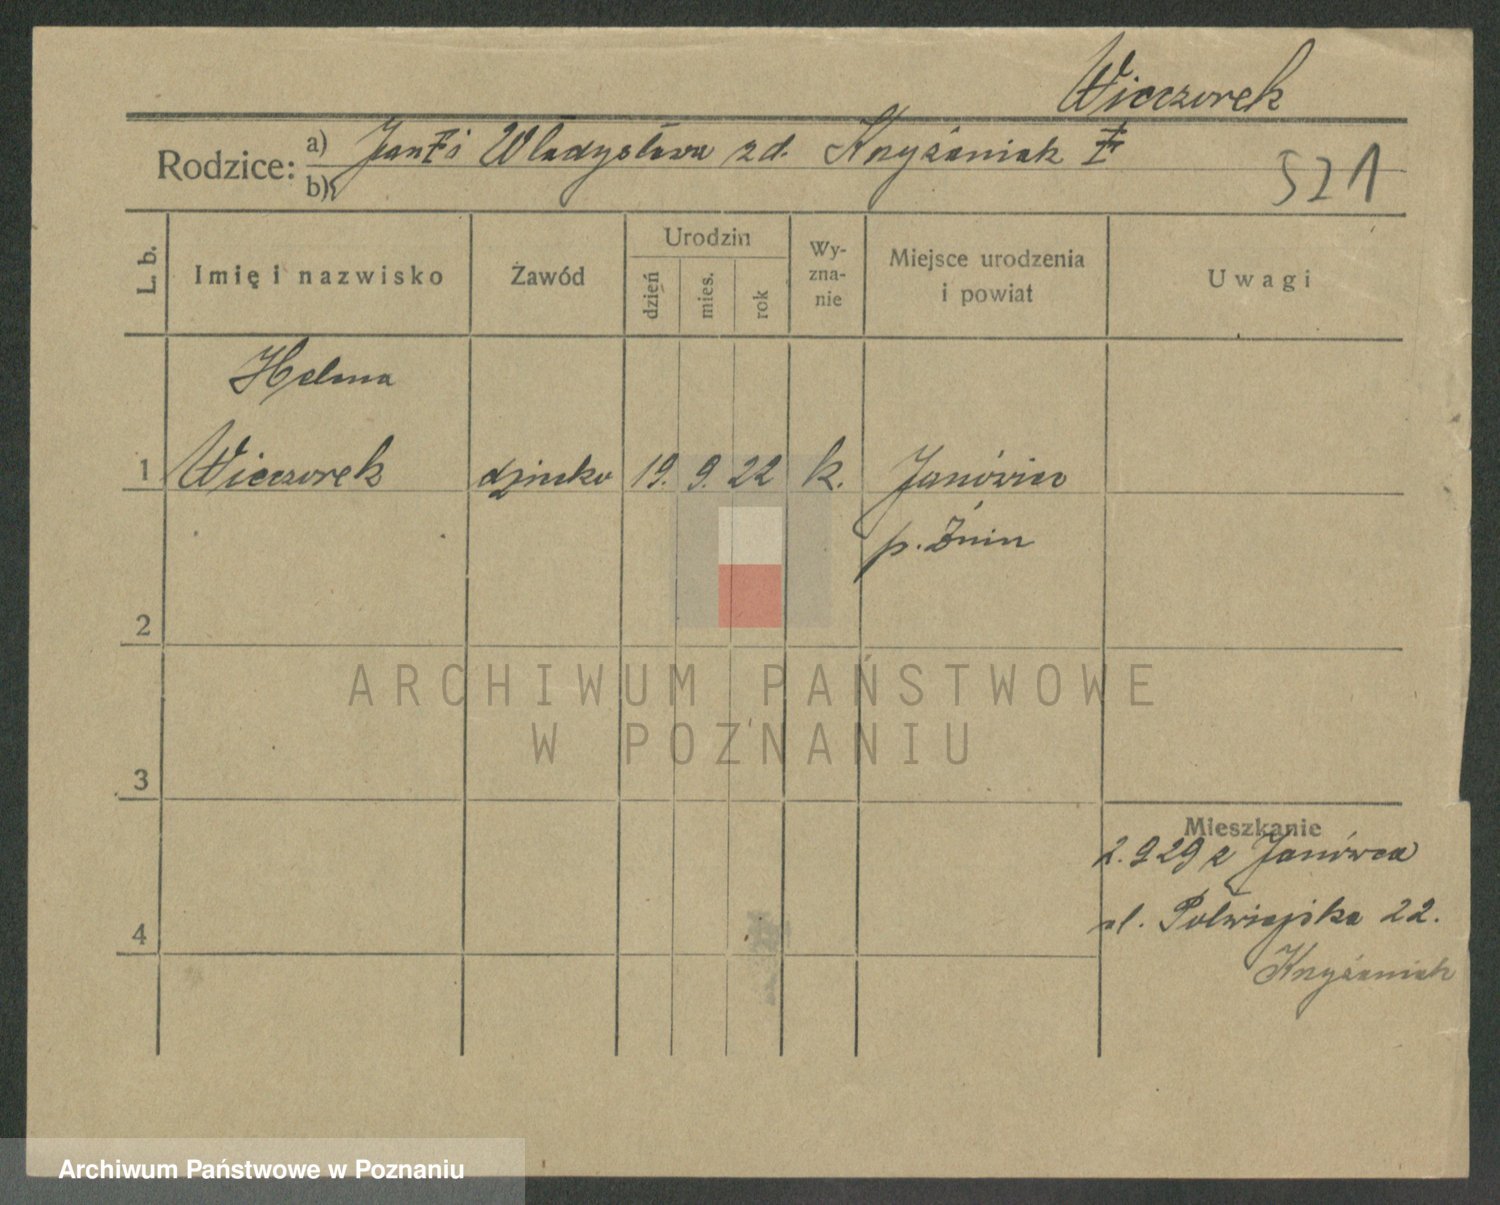 Wieczorek
Rodzice: a) Jan † i Władysława zd. Krzyżaniak †
b)
521
L. b. Imię i nazwisko Zawód Urodzin dzień mies. rok Wy-zna-nie Miejsce urodzenia i powiat Uwagi
Helena
1 Wieczorek dziecko 19. 9. 22 k. Janówiec
p. Żnin
2
ARCHIWUM PAŃSTWOWE
W POZNANIU
3
Mieszkanie
2.9.29 z Janówca
ul. Półwiejska 22.
4
Krzyżaniak
Archiwum Państwowe w Poznaniu